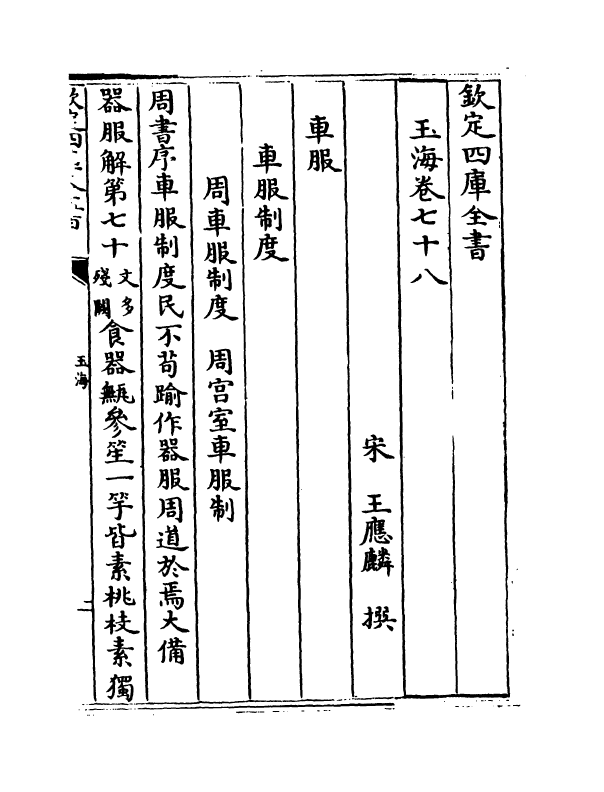 欽定四庫全書
玉海卷七十八
宋 王應麟 撰
車服
車服制度
周車服制度 周宫室車服制
周書序車服制度民不苟踰作器服周道於焉大備
器服解第七十文多殘闕食器甒參笙一竽皆素桃枝素獨
欽定四庫全書
玉海
二